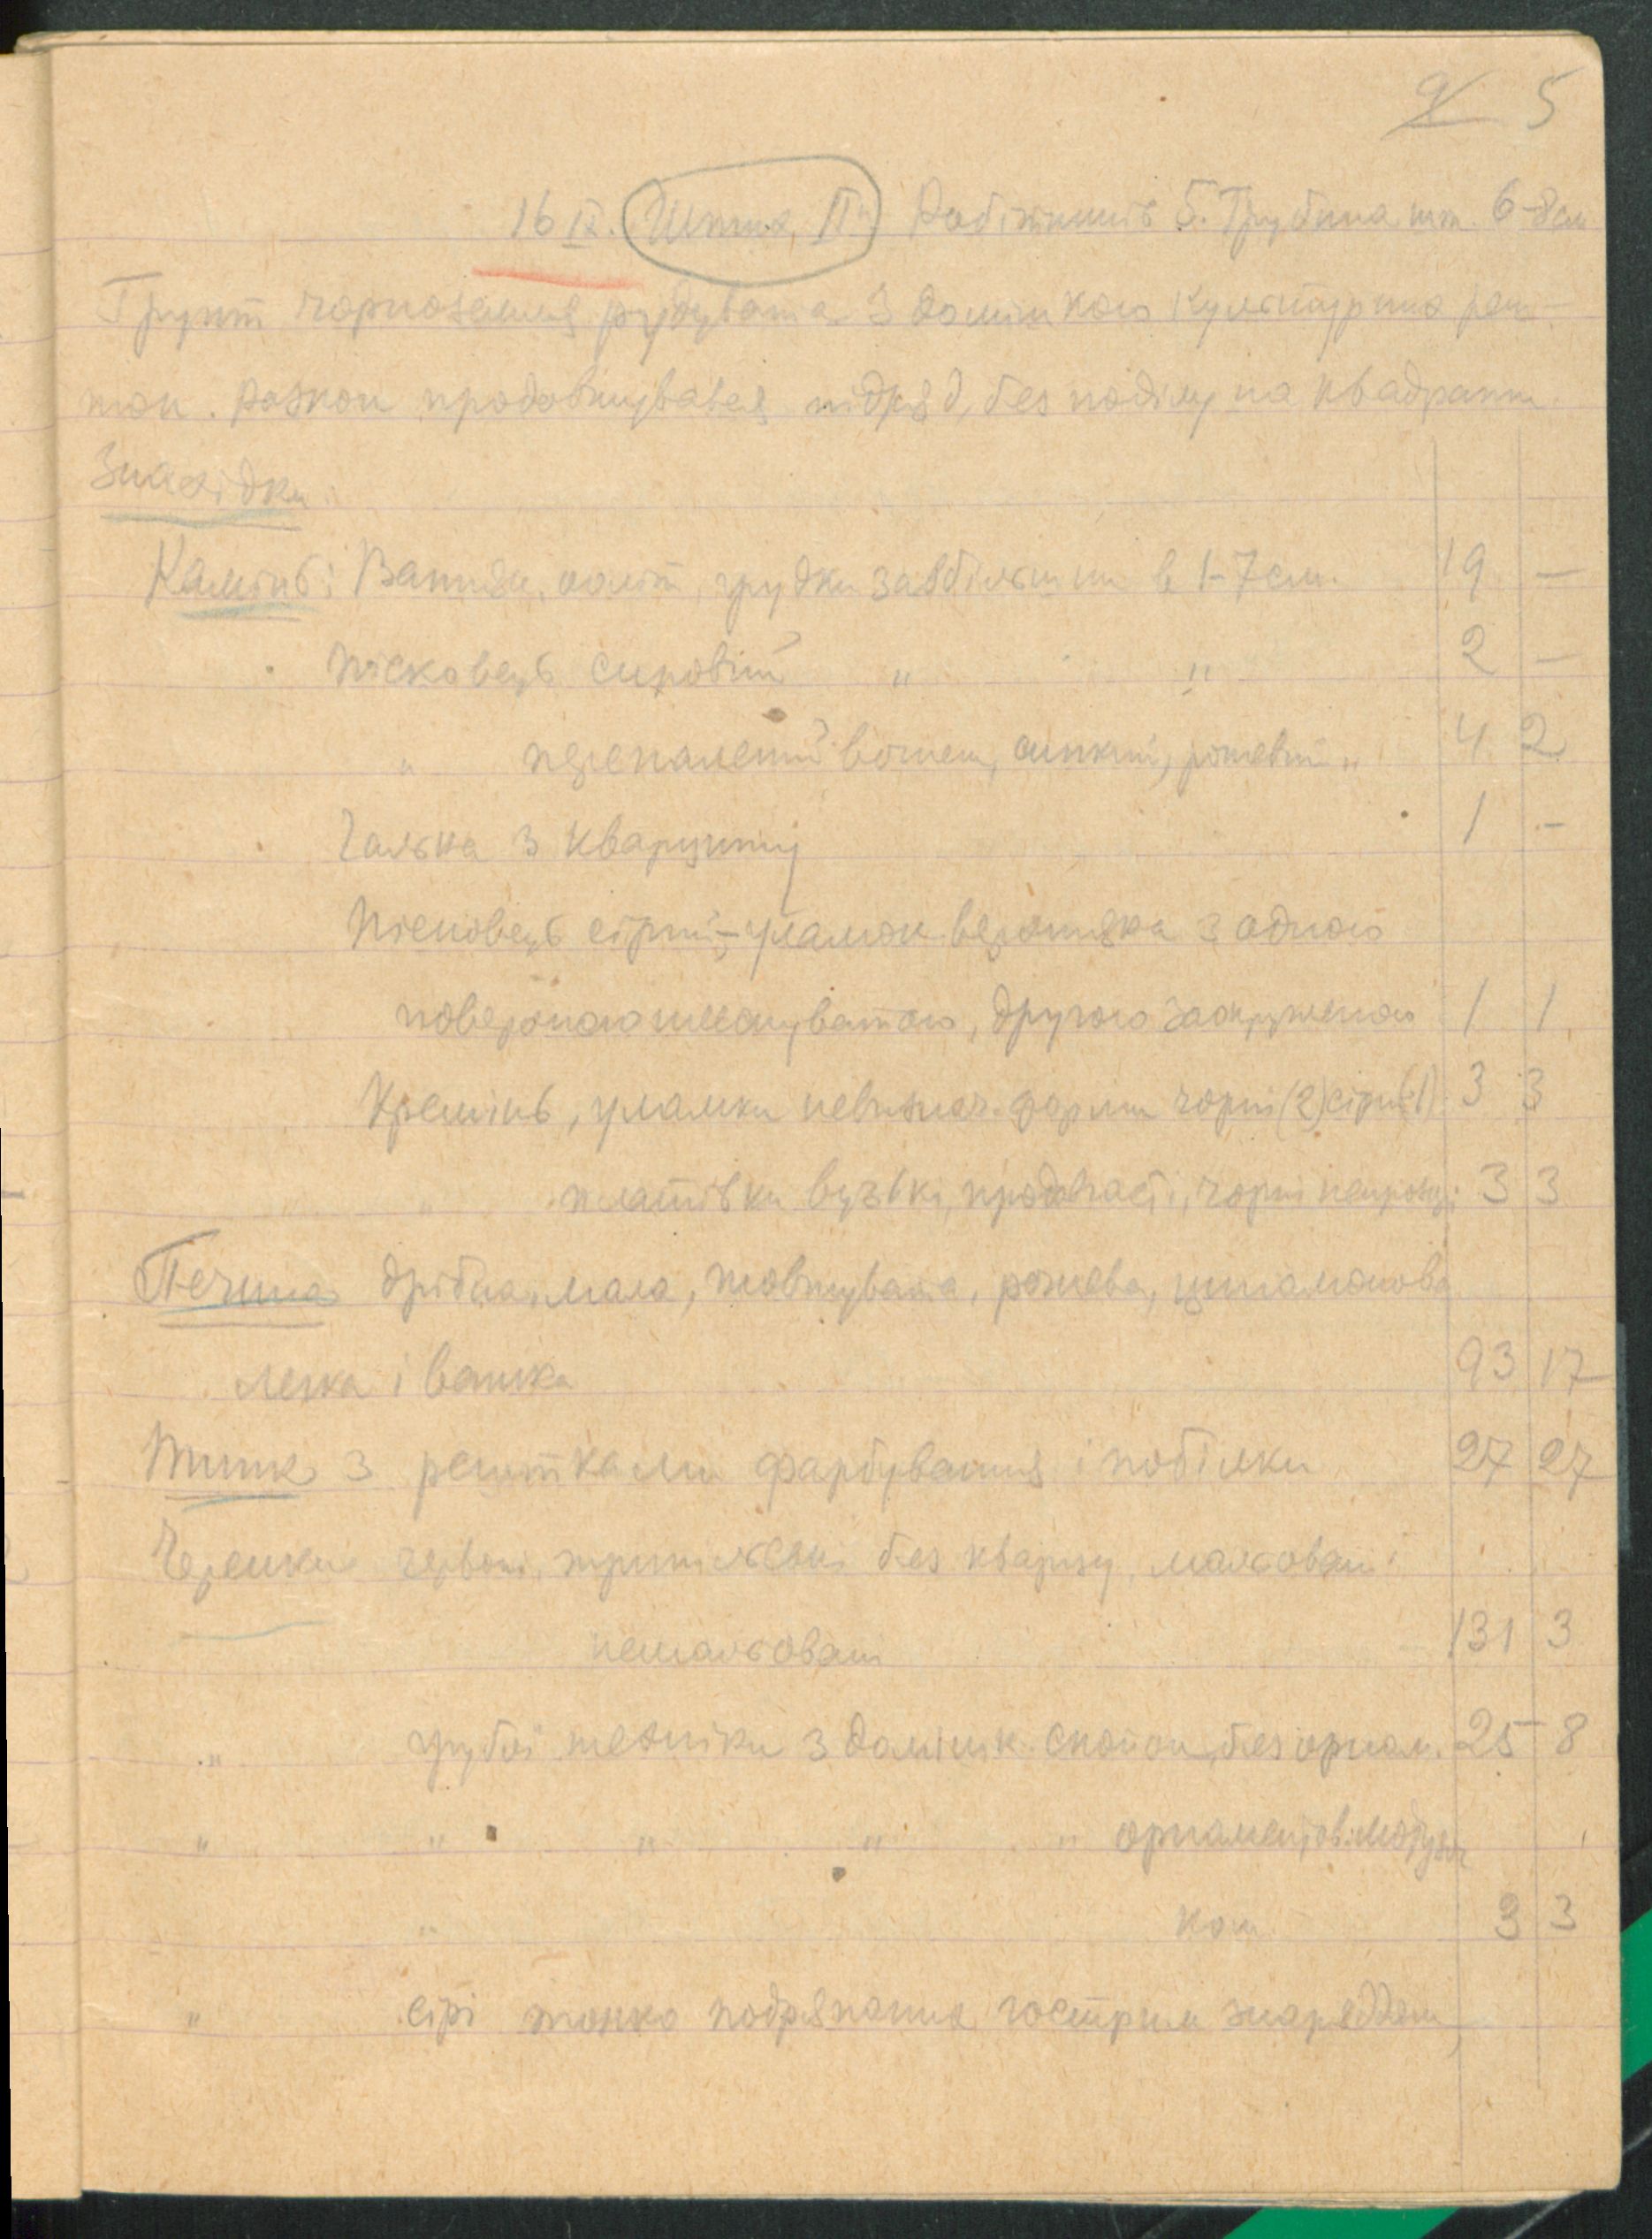 5
16 IX. Штих II Робітників 5. Глубина шт. 6-8 см
Грунт чорноземля рудувата з домішкою культурних реш-
ток. Розкоп продовжувався підряд, без поділу на квадрати.
Знахідки:
Камінь: Вапняк, ооліт, грудки завбільшки в 1-7 см. 19 —
Пісковець сировий " " 2 —
" перепалений вогнем, сипкий, рожевий " 4 2
Галька з кварциту 1 —
Пісковець сірий – уламок верхняка з одною
поверхнею плескуватою, другою заокругленою 1 1
Кремінь, уламки невизнач. форми чорні (2) сірий (1) 3 3
" платівки вузькі, продовгасті, чорні непрозорі 3 3
Печина дрібна, мала, жовтувата, рожева, цинамонова
легка і важка 93 17
Тинк з рештками фарбування і побілки 27 27
Черепки червоні, трипільські без кварцу, мальовані і
немальовані 131 3
" грубої техніки з доміш. скойок, без орнам. 25 8
" " " " " орнаментов. мотуз-
" ком 3 3
" сірі тонко подряпаних гострим знаряддям,